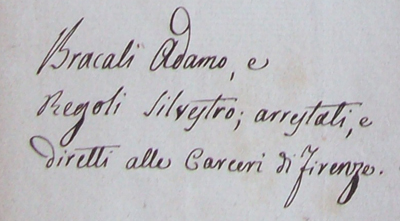 Bracali Adamo, e
Regoli Silvestro; arrestati, e
diretti alle Carceri di Firenze.